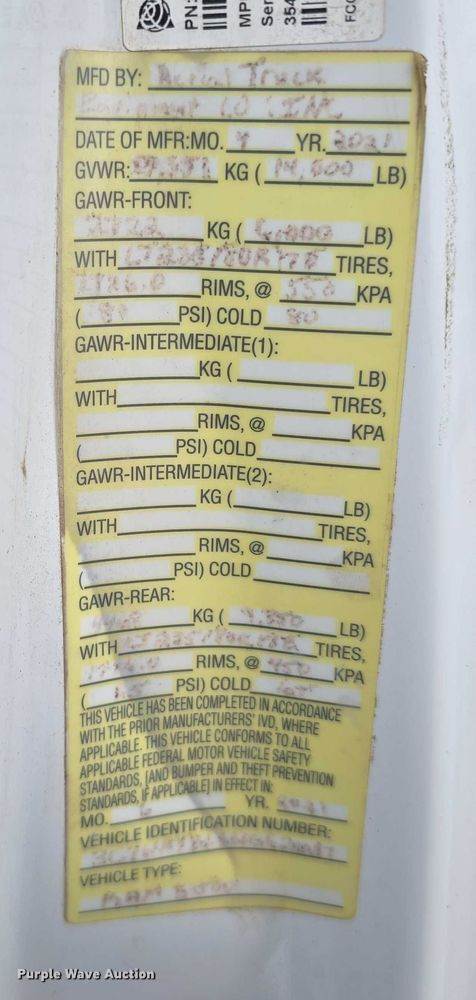 PN:
MP
Ser
354
FCC
MFD BY: Truck
Equipment CO INC
DATE OF MFR:MO. 4 YR. 2021
GVWR: KG ( 14,000 LB)
GAWR-FRONT:
2722 KG ( 6,000 LB)
WITH TIRES,
RIMS, @ 550 KPA
( 80 PSI) COLD 80
GAWR-INTERMEDIATE(1):
KG ( LB)
WITH TIRES,
RIMS, @ KPA
( PSI) COLD
GAWR-INTERMEDIATE(2):
KG ( LB)
WITH TIRES,
RIMS, @ KPA
( PSI) COLD
GAWR-REAR:
KG ( LB)
WITH TIRES,
RIMS, @ 450 KPA
( 65 PSI) COLD 65
THIS VEHICLE HAS BEEN COMPLETED IN ACCORDANCE
WITH THE PRIOR MANUFACTURERS' IVD, WHERE
APPLICABLE. THIS VEHICLE CONFORMS TO ALL
APPLICABLE FEDERAL MOTOR VEHICLE SAFETY
STANDARDS, [AND BUMPER AND THEFT PREVENTION
STANDARDS, IF APPLICABLE] IN EFFECT IN:
MO. YR. 2021
VEHICLE IDENTIFICATION NUMBER:
VEHICLE TYPE:
RAM
Purple Wave Auction